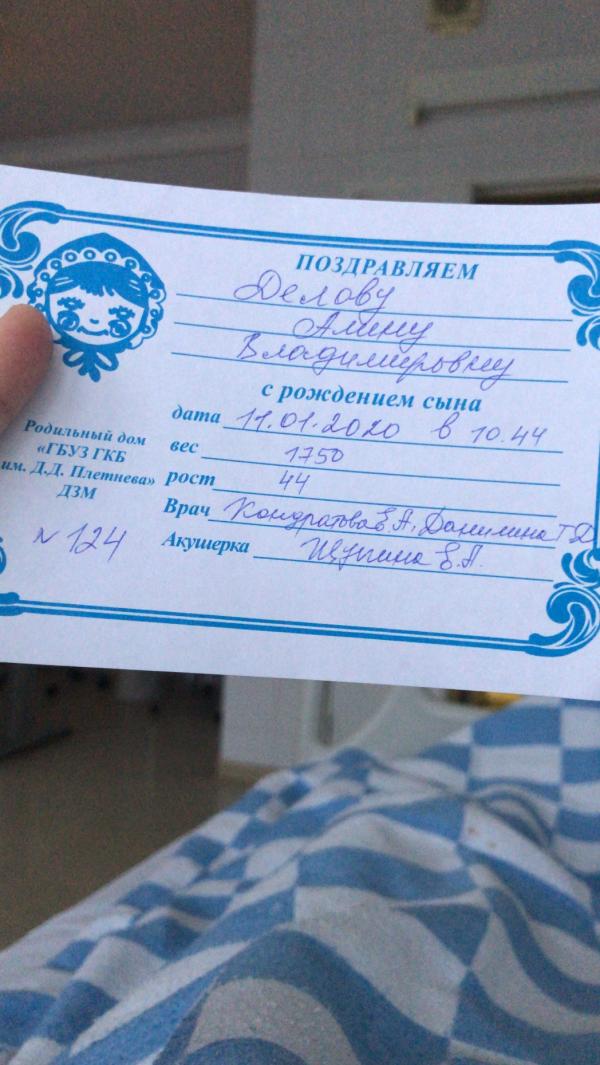 ПОЗДРАВЛЯЕМ
Делову
Алину
Владимировну
с рождением сына
дата 11.01.2020 в 10.44
вес 1750
рост 44
Врач Кондратьева Е.А, Данилина Т.Д
Акушерка Щукина Е.А.
Родильный дом
«ГБУЗ ГКБ
им. Д.Д. Плетнева»
ДЗМ
N 124